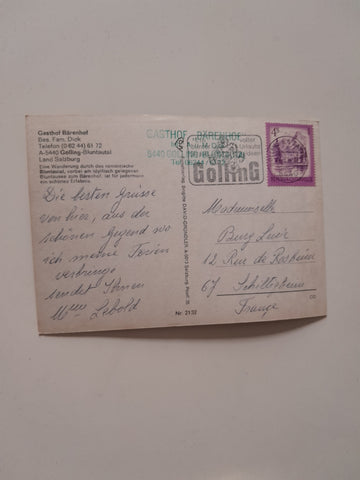 Gasthof Bärenhof
Bes. Fam. Dick
Telefon (0 62 44) 61 72
A-5440 Golling-Bluntautal
Land Salzburg
Eine Wanderung durch das romantische
Bluntautal, vorbei am idyllisch gelegenen
Bluntausee zum Bärenhof, ist für jedermann
ein schönes Erlebnis.
Die besten Grüsse
von hier, aus der
schönen Gegend wo
ich meine Ferien
verbringe
sendet Ihnen
Mme Lebold
GASTHOF "BÄRENHOF"
5440 GOLLING
GollinG
4
Nr. 2132
Mademoiselle
Burg Lucie
12 Rue de Rosheim
67 Schiltigheim
France